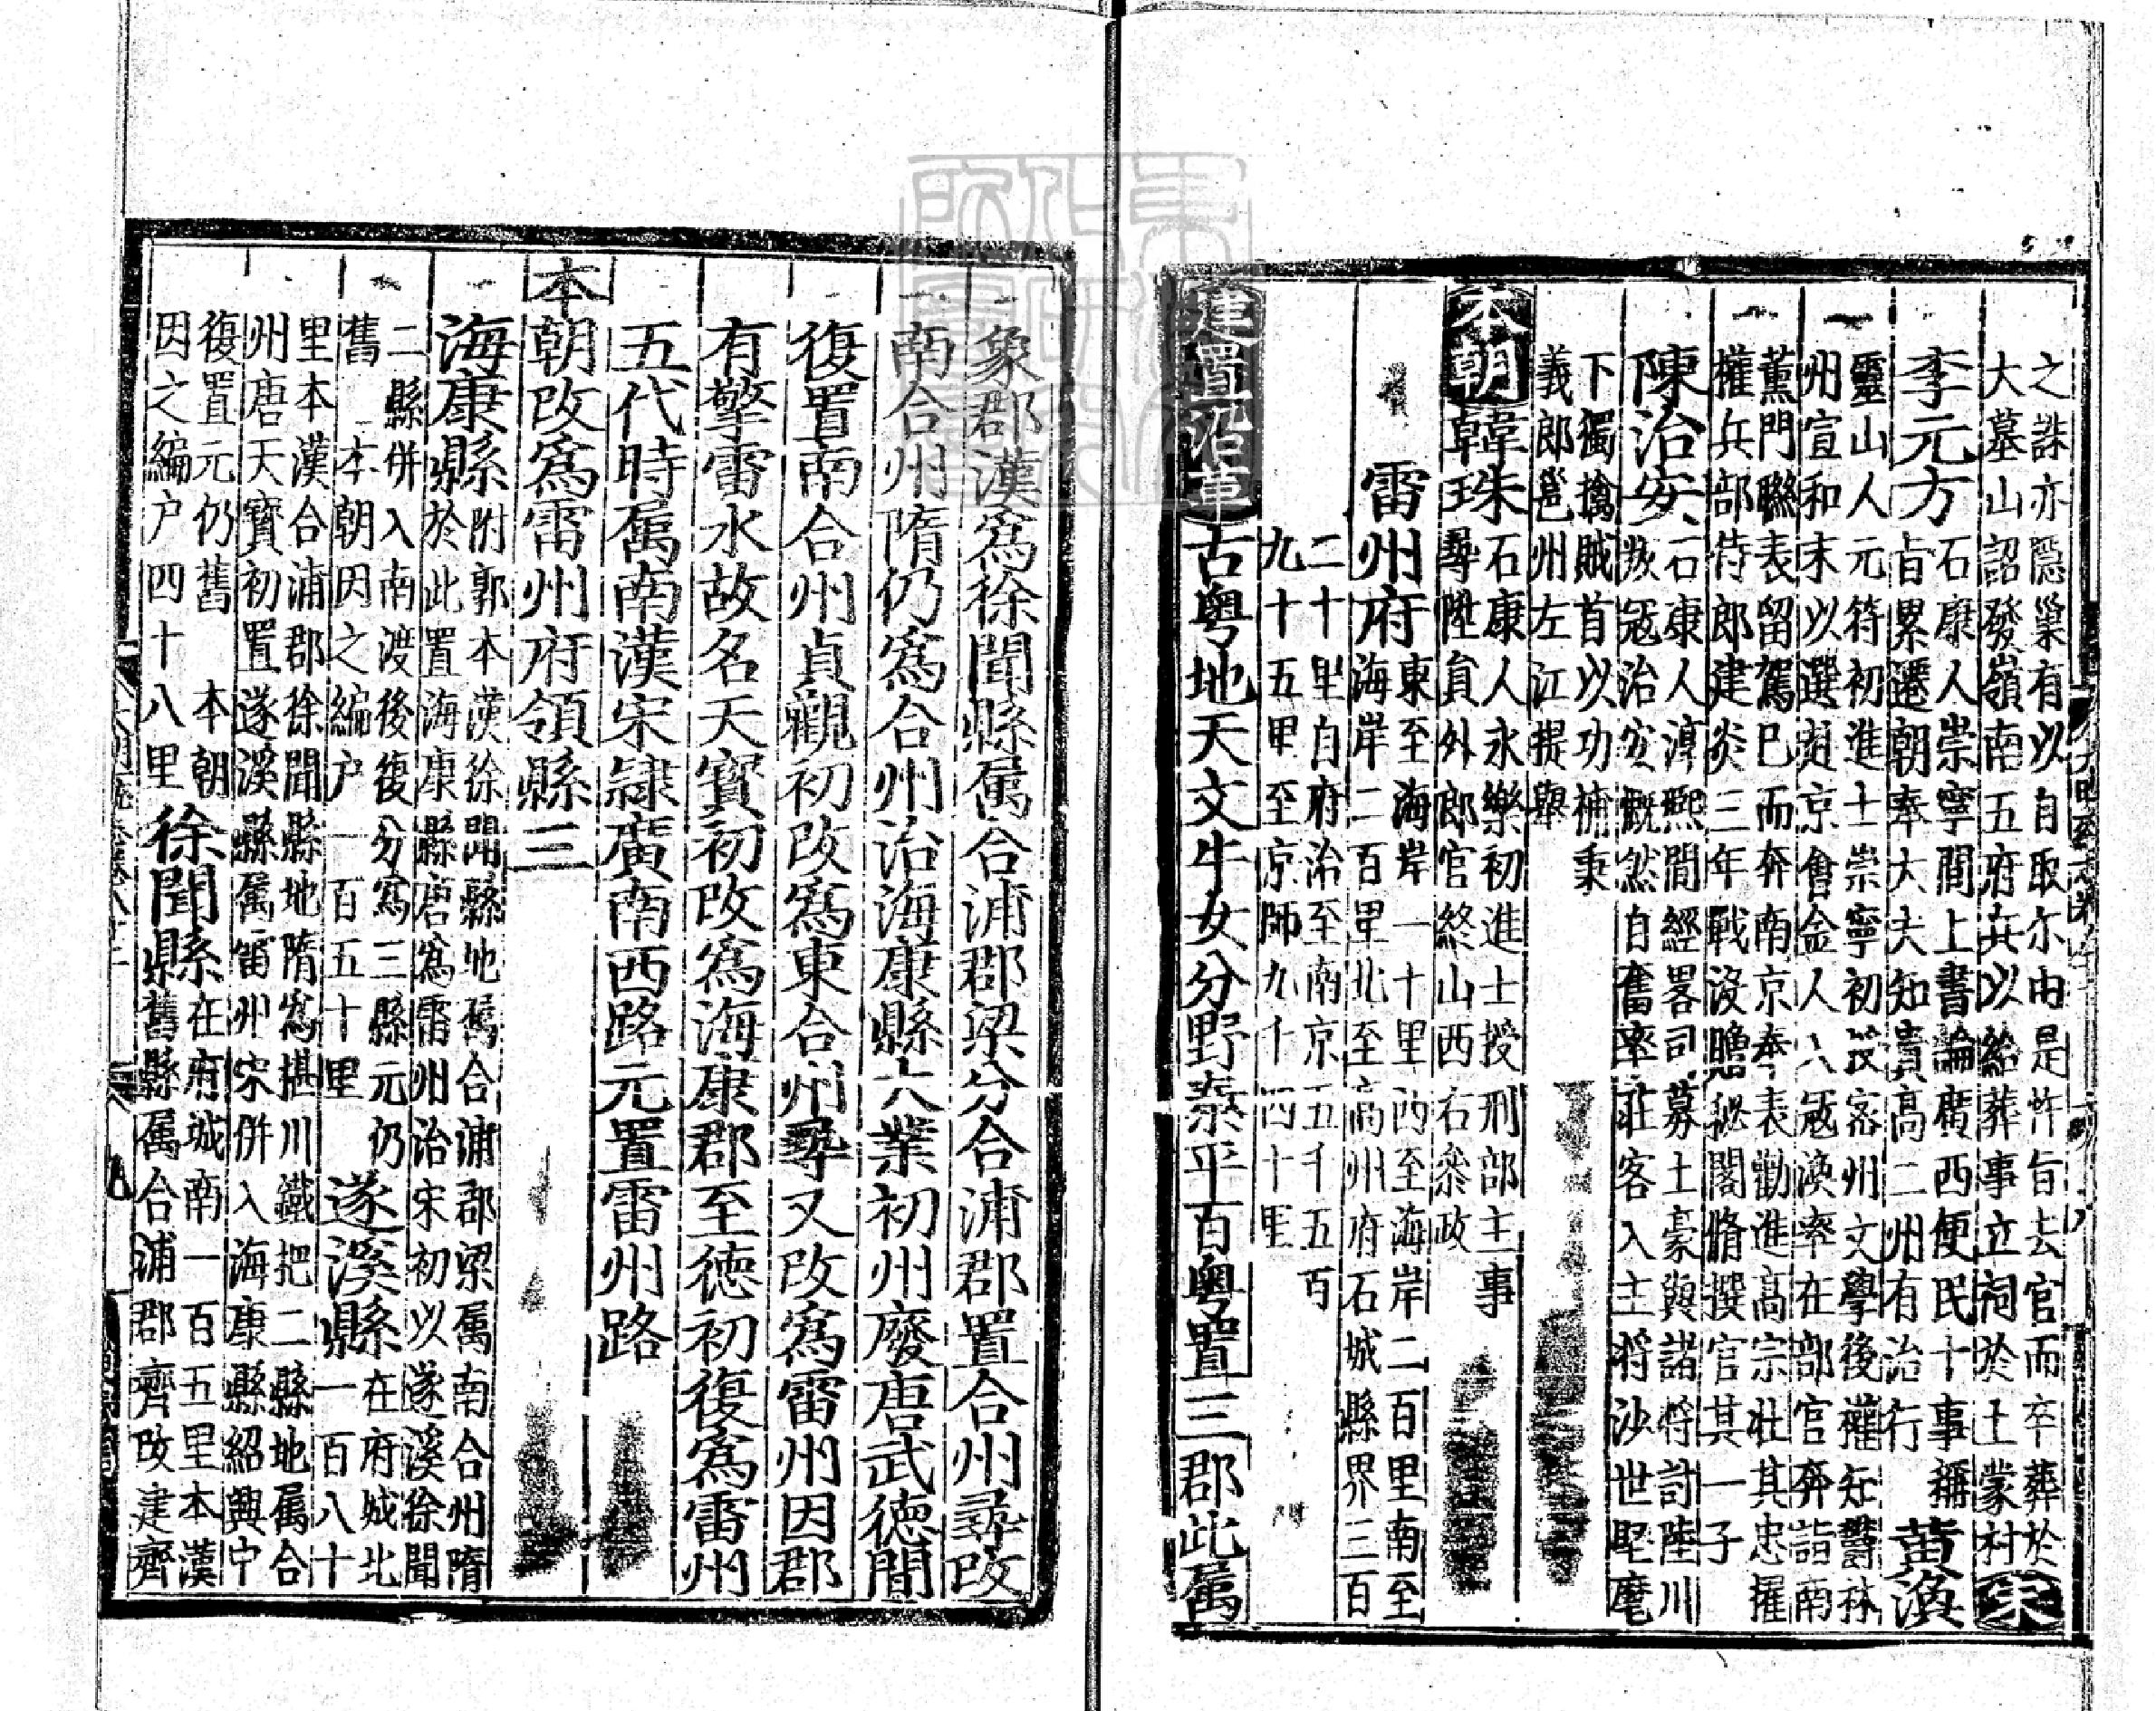 之誅亦隱巢有以自取尓由是忤旨去官而卒葬於
大墓山詔發嶺南五府兵以給葬事立祠於土蒙村 宋
李元方 石康人崇寧間上書論廣西便民十事稱
旨累遷朝奉大夫知賓髙二州有治行 黄渙
靈山人元符初進士崇寧初授容州文學後擢知欝林
州宣和末以選赴京會金人入冦渙率在部官奔詣南
薫門聮表留駕巳而奔南京奉表勸進髙宗壮其忠擢
權兵部侍郎建炎三年戰没贈秘閣脩撰官其一子
陳治安 石康人淳熙間經畧司募土豪與諸将討陸川
叛冦治安慨然自奮率莊客入主将沙世堅麾
下獨擒賊首以功補秉
義郎邕州左江提舉
本朝 韓珠 石康人永樂初進士授刑部主事
尋陞貟外郎官終山西右叅政
雷州府 東至海岸一十里西至海岸二百里南至
海岸二百里北至髙州府石城縣界三百
二十里自府治至南京五千五百
九十五里至京師九千四十里
建置沿革 古粤地天文牛女分野秦平百粤置三郡此属
象郡漢爲徐聞縣属合浦郡梁分合浦郡置合州尋改
南合州隋仍爲合州治海康縣大業初州廢唐武德間
復置南合州貞觀初改爲東合州尋又改爲雷州因郡
有擎雷水故名天寳初改爲海康郡至德初復爲雷州
五代時属南漢宋隸廣南西路元置雷州路
本朝改爲雷州府領縣三
海康縣 附郭本漢徐聞縣地舊合浦郡梁属南合州隋
於此置海康縣唐爲雷州治宋初以遂溪徐聞
二縣併入南渡後復分爲三縣元仍
舊 本朝因之編户一百五十里 遂溪縣 在府城北
一百八十
里本漢合浦郡徐聞縣地隋爲椹川鐵把二縣地属合
州唐天寳初置遂溪縣属雷州宋併入海康縣紹興中
復置元仍舊 本朝
因之編户四十八里 徐聞縣 在府城南一百五里本漢
舊縣属合浦郡齊改建齊